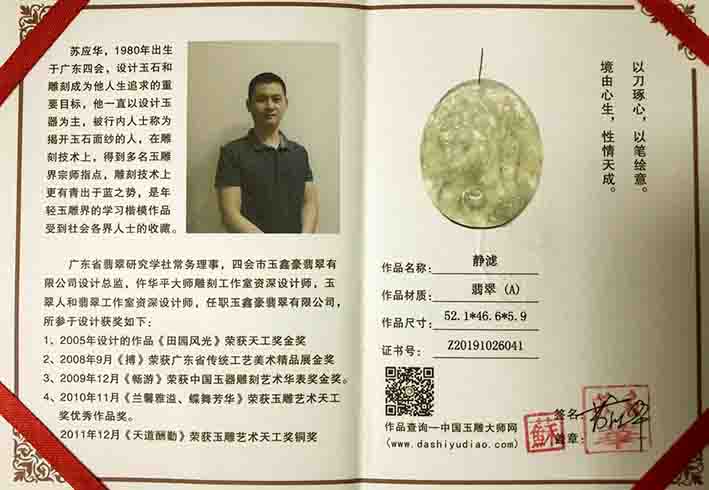 苏应华，1980年出生
于广东四会，设计玉石和
雕刻成为他人生追求的重
要目标，他一直以设计玉
器为主，被行内人士称为
揭开玉石面纱的人，在雕
刻技术上，得到多名玉雕
界宗师指点，雕刻技术上
更有青出于蓝之势，是年
轻玉雕界的学习楷模作品
受到社会各界人士的收藏。
广东省翡翠研究学社常务理事，四会市玉鑫豪翡翠有
限公司设计总监，仵华平大师雕刻工作室资深设计师，玉
翠人和翡翠工作室资深设计师，任职玉鑫豪翡翠有限公司，
所参于设计获奖如下：
1、2005年设计的作品《田园风光》荣获天工奖金奖
2、2008年9月《搏》荣获广东省传统工艺美术精品展金奖
3、2009年12月《畅游》荣获中国玉器雕刻艺术华表奖金奖。
4、2010年11月《兰馨雅溢、蝶舞芳华》荣获玉雕艺术天工
奖优秀作品奖。
2011年12月《天道酬勤》荣获玉雕艺术天工奖铜奖
以刀琢心，以笔绘意。
境由心生，性情天成。
作品名称：静滤
作品材质：翡翠（A）
作品尺寸：52.1*46.6*5.9
证书号：Z20191026041
作品查询—中国玉雕大师网
(www.dashiyudiao.com)
签名
盖章：
蘇